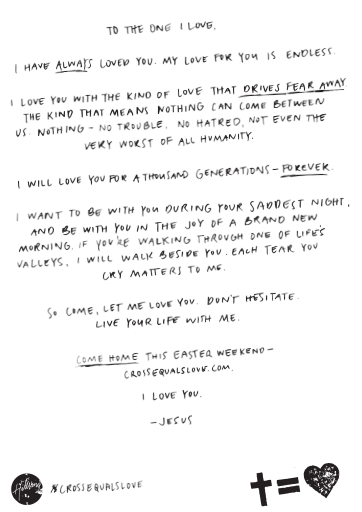 TO THE ONE I LOVE,
I HAVE ALWAYS LOVED YOU. MY LOVE FOR YOU IS ENDLESS.
I LOVE YOU WITH THE KIND OF LOVE THAT DRIVES FEAR AWAY
THE KIND THAT MEANS NOTHING CAN COME BETWEEN
US. NOTHING - NO TROUBLE, NO HATRED, NOT EVEN THE
VERY WORST OF ALL HUMANITY.
I WILL LOVE YOU FOR A THOUSAND GENERATIONS - FOREVER.
I WANT TO BE WITH YOU DURING YOUR SADDEST NIGHT,
AND BE WITH YOU IN THE JOY OF A BRAND NEW
MORNING. IF YOU'RE WALKING THROUGH ONE OF LIFE'S
VALLEYS, I WILL WALK BESIDE YOU. EACH TEAR YOU
CRY MATTERS TO ME.
SO COME, LET ME LOVE YOU. DON'T HESITATE.
LIVE YOUR LIFE WITH ME.
COME HOME THIS EASTER WEEKEND -
CROSSEQUALSLOVE.COM.
I LOVE YOU.
- JESUS
Hillsong #CROSSEQUALSLOVE